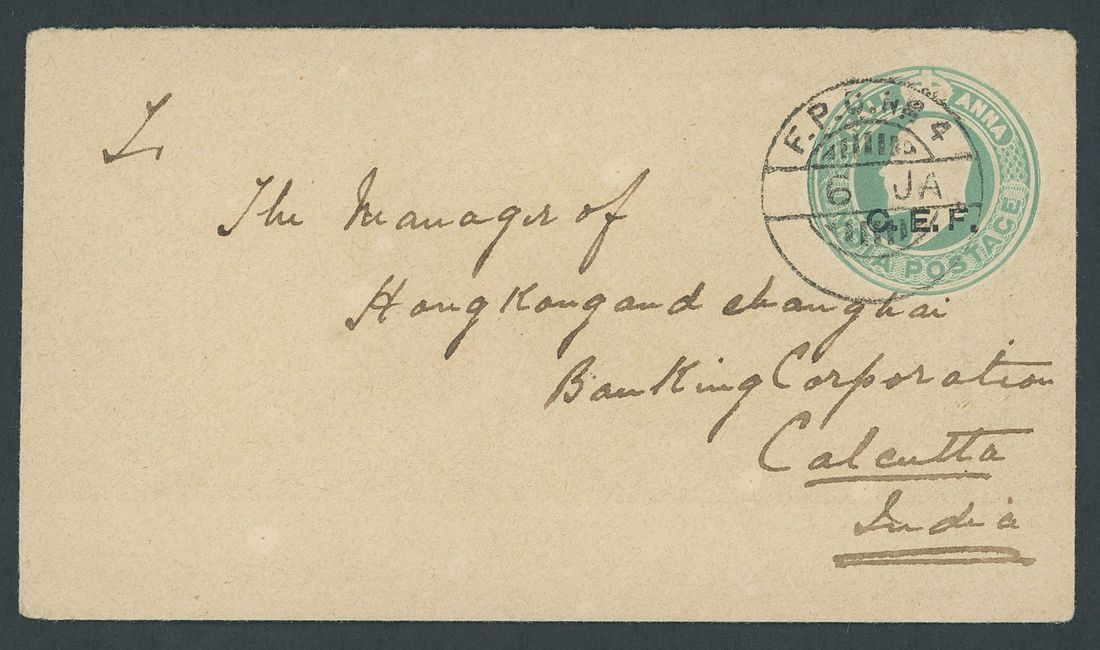 F.P.O. No 4
6 JA
HALF ANNA
C. E. F.
INDIA POSTAGE
To
The Manager of
Hong Kong and Shanghai
Banking Corporation
Calcutta
India